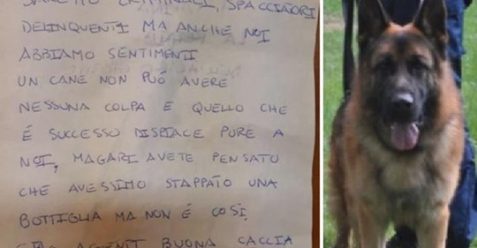 SAREMO CRIMINALI, SPACCIATORI
DELINQUENTI MA ANCHE NOI
ABBIAMO SENTIMENTI
UN CANE NON PUÓ AVERE
NESSUNA COLPA E QUELLO CHE
É SUCCESSO DISPIACE PURE A
NOI, MAGARI AVETE PENSATO
CHE AVESSIMO STAPPATO UNA
BOTTIGLIA MA NON É COSÍ,
AGENTI BUONA CACCIA